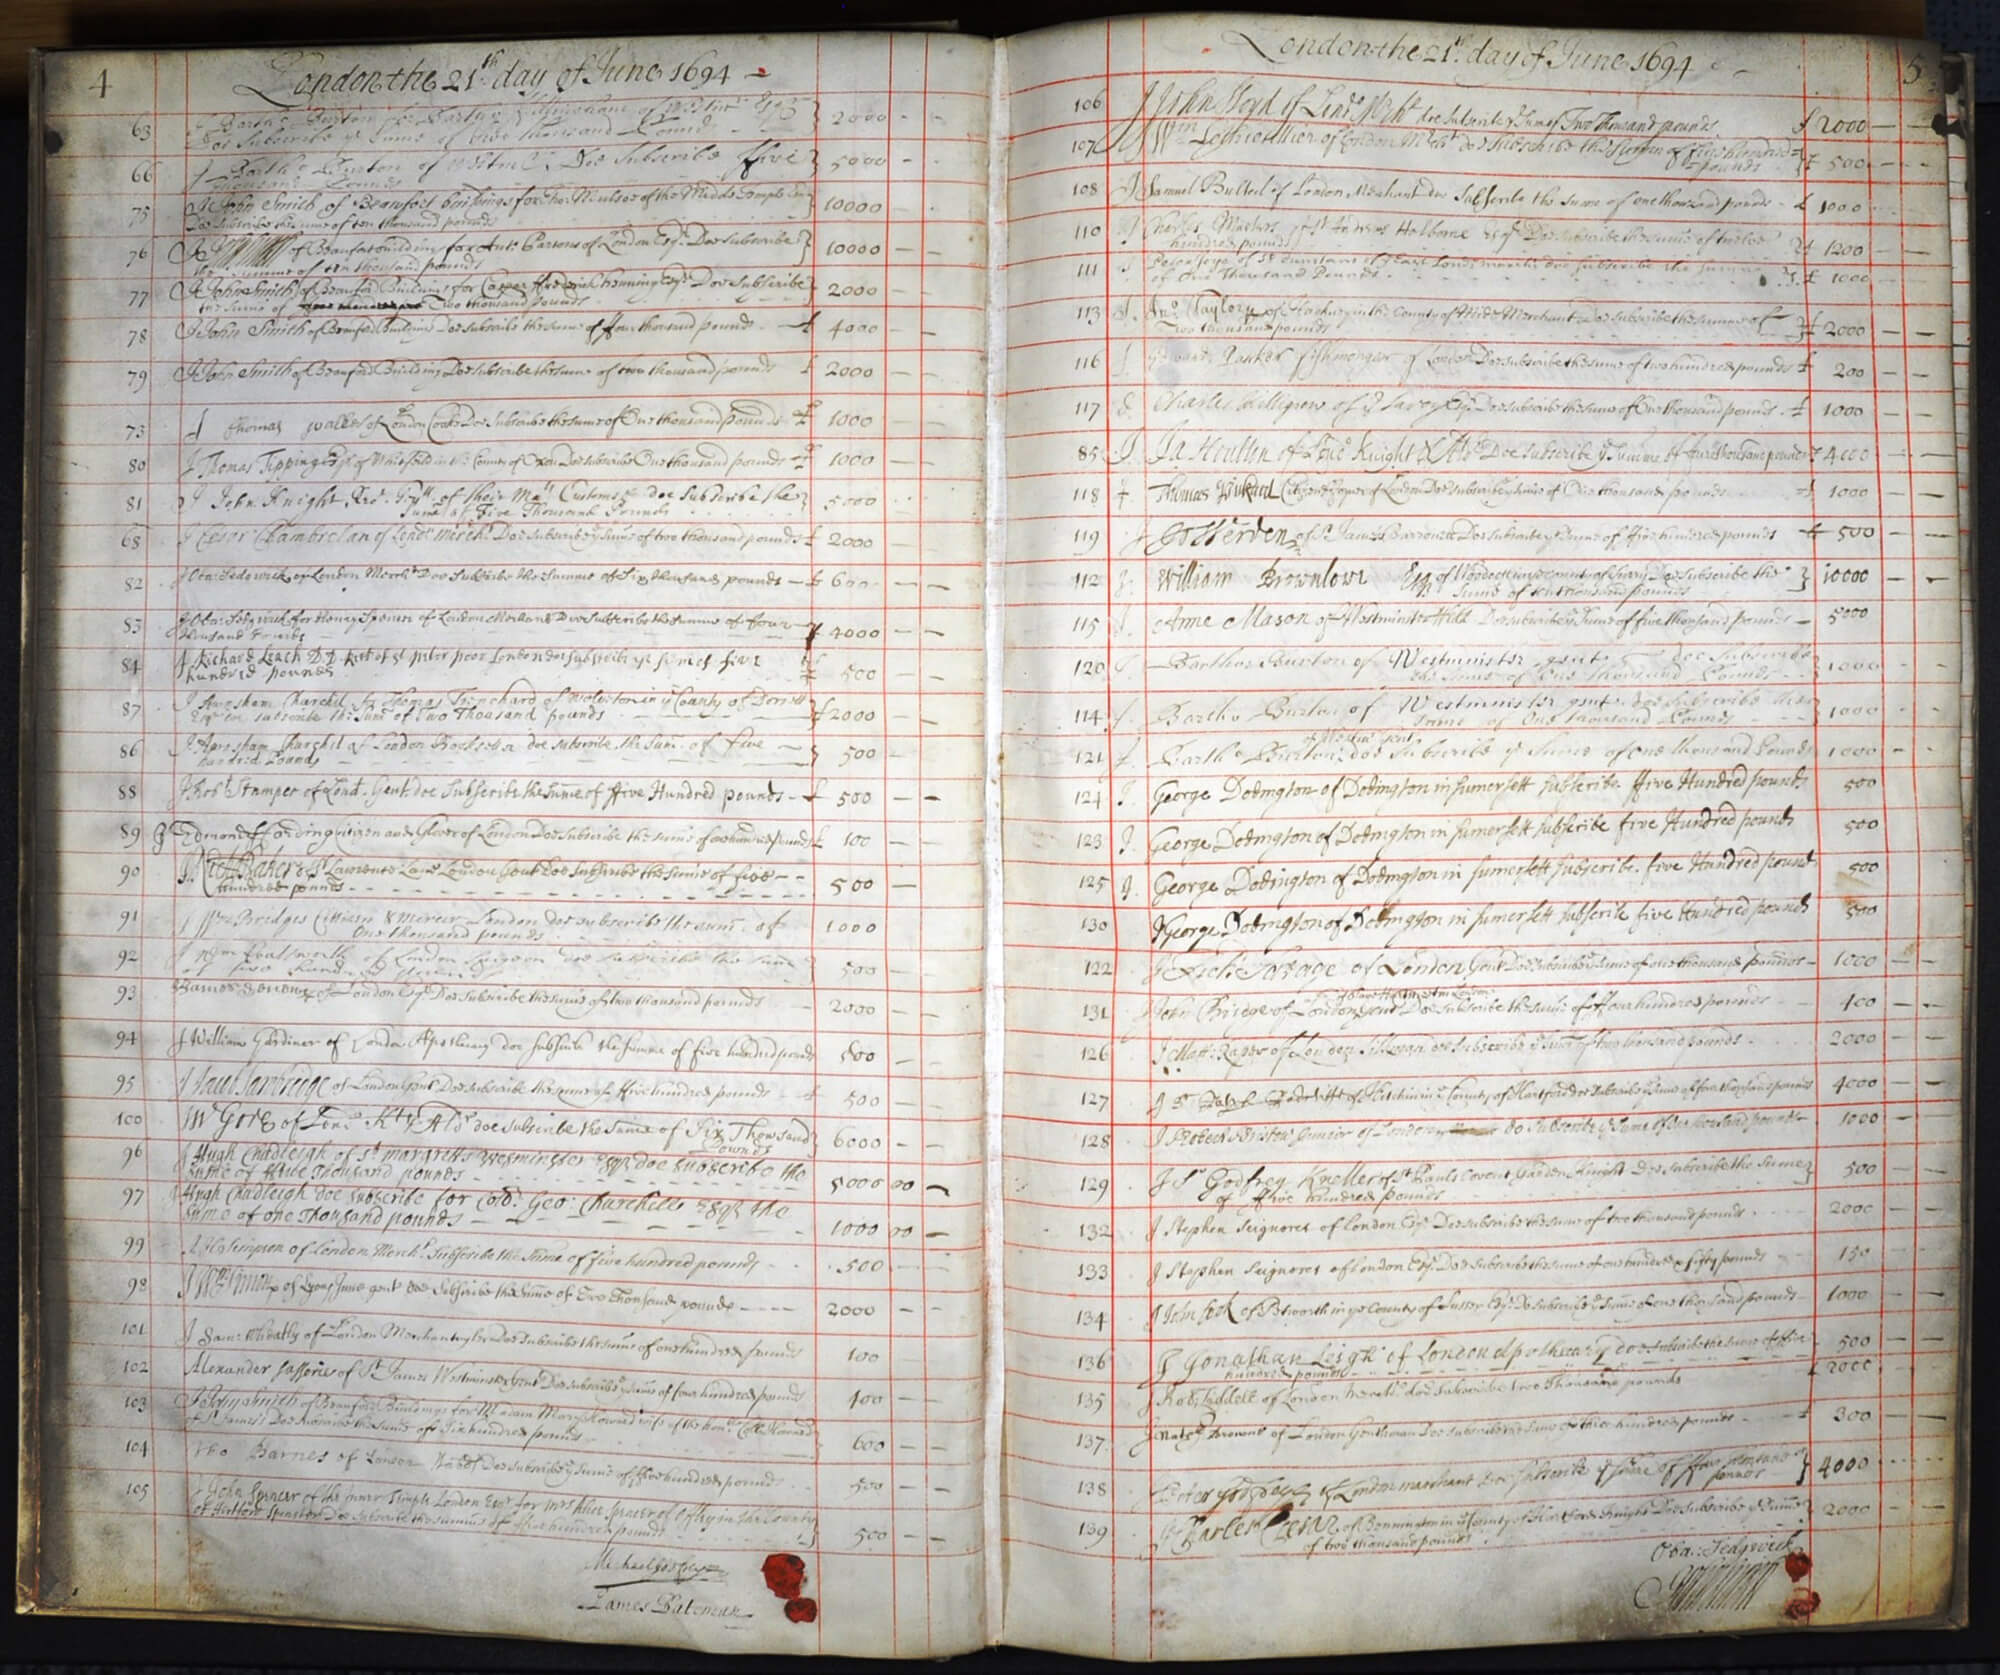 4
London the 21th day of June 1694
63 I Bartho: Burton for of Westmr Esqr
Doe Subscribe ye Summe of Two thousand Pounds 2000
66 I Bartho: Burton of Westmr Doe Subscribe ffive
thousand Pounds 5000
75 I John Smith of Beaufort buildings for Tho: of the Middle Temple Esqr
Doe Subscribe the sume of ten thousand pounds 10000
76 I John Smith of Beaufort buildings for Anto: Parsons of London Esqr. Doe Subscribe
the summe of ten thousand pounds 10000
77 I John Smith of Beauford Buildings for Caspar ffrederick Henning Esqr. Doe Subscribe
the Sume of Two thousand pounds 2000
78 I John Smith of Beauford Buildings Doe Subscribe the sume of ffour thousand pounds £ 4000
79 I John Smith of Beauford Buildings Doe Subscribe the Sume of two thousand pounds £ 2000
73 I Thomas Walker of London Cooke Doe Subscribe the sume of One thousand pounds £ 1000
80 I Thomas Tippinge of Whitfeild in the County of Oxon Doe Subscribe One thousand pounds £ 1000
81 I John Knight of their Maties Customes doe Subscribe the
Sume of Five Thousand Pounds 5000
68 I Cesar Chambrelan of London Mercht Doe Subscribe ye Sume of two thousand pounds £ 2000
82 I Oba: Sedgwick of London Mercht Doe Subscribe the Summe of Six thousand pounds £ 600
83 I Oba: Sedgwick for Honey Spencer of London Merchant Doe Subscribe the summe of four
thousand Pounds £ 4000
84 I Richard Leach D.D. Rectr of St Peter poor London doe subscribe ye sume of five
hundred pounds £ 500
87 I Awnsham Churchil for Thomas Trenchard of Wolveton in ye County of Dorsett
Esqr doe subscribe the Sum of Two Thousand pounds £ 2000
86 I Awnsham Churchil of London Bookseller doe subscribe the Sum of five
hundred Pounds 500
88 I Robt Stamper of Lond. Gent. doe Subscribe the Sume of ffive Hundred pounds £ 500
89 I Edmond ffording Citizen and Glover of London Doe Subscribe the sume of one hundred pounds £ 100
90 I Richd Baker of St Lawrence Lane London Gent Doe Subscribe the Sume of five
hundred pounds 500
91 I Wm Bridges Citizen & mercer London doe subscribe the sum of
One thousand pounds 1000
92 I of London Surgeon doe subscribe the sume
of five hundred 500
93 I James Denew of London Esqr Doe Subscribe the sume of two thousand pounds 2000
94 I William Gardiner of London Apothecary doe subscribe the summe of five hundred pounds 500
95 I Jacob Sambridge of London Gent Doe Subscribe the sume of ffive hundred pounds £ 500
100 Wm Gore of Lond Kt & Aldr doe subscribe the Sume of Six Thowsand
Pounds 6000
96 I Hugh Chudleigh of St margretts Wesminster Esqr doe subscribe the
Sume of ffive Thousand pounds 5000 00
97 I Hugh Chudleigh doe subscribe for Coll: Geo: Churchell Esqr the
Sume of one Thousand pounds 1000 00
99 I Simpson of London Mercht. subscribe the sume of five hundred pounds 500
98 I Wm of Lyons Inne gent doe Subscribe the Sume of Two Thousand pounds 2000
101 I Sam: Wheatly of London Merchanttayler Doe Subscribe the sume of one hundred pounds 100
102 Alexander Jafforie of St James Westminster Gent Doe Subscribe ye sume of four hundred pounds 400
103 I John Smith of Beauford Buildings for Madam Mary Howard wife of the honble Coll: Howard
of St James's Doe Subscribe the sume of Six hundred pounds 600
104 Tho Barnes of London Doe subscribe ye sume of ffive hundred pounds 500
105 I John Spencer of the Inner Temple London Esqr for Mrs Alice Spencer of Offley in the County
of Hertford Spinster Doe Subscribe the summe of ffive hundred pounds 500
Michael Godfrey
James Bateman
5
London the 21th day of June 1694
106 I John Lloyd of Lond. Mercht doe subscribe ye Sume of Two Thousand pounds £ 2000
107 I Wm Lethieullier of London Mercht doe Subscribe the Summ of ffive hundred
pounds £ 500
108 I Samuel Bulteel of London Merchant doe Subscribe the Sume of one thousand pounds £ 1000
110 I Charles of St Andrews Holborne Esqr Doe Subscribe the sume of twelve
hundred pounds £ 1200
111 I of St Dunstans of ye East Londn marcht doe subscribe the summe
of One Thousand Pounds £ 1000
113 I Taylor of Hackney in the County of Midx Merchant Doe subscribe the summe of
Two thousand pounds £ 2000
116 I Edward Parker ffishmonger of London Doe subscribe the sume of two hundred pounds £ 200
117 I Charles Killigrew of ye Savoy Esqr Doe subscribe the sume of One thousand pounds £ 1000
85 I Ja Houblon of Lond Knight & Aldr Doe subscribe ye Summe of foure thousand pounds £ 4000
118 I Thomas Pickard Citizen of London Doe subscribe ye sume of One thousand pounds £ 1000
119 I of St James's Barronett Doe subscribe ye sume of ffive hundred pounds £ 500
112 I William Brownlowe Esqr of in ye County of Surry Doe subscribe the
sume of ten thousand pounds 10000
115 I Anne Mason of Westminster Hall Doe subscribe ye Sume of five thousand pounds 5000
120 I Bartho: Burton of Westminister gent. doe subscribe
the Sume of One thousand Pounds 1000
114 I Bartho Burton of Westminister gent. doe Subscribe the
Sume of One thousand Pounds 1000
of Westmr gent
121 I Bartho: Burton doe Subscribe ye Sume of One thousand Pounds 1000
124 I George Dodington of Dodington in Sumersett subscribe ffive Hundred pounds 500
123 I George Dodington of Dodington in sumersett subscribe five Hundred pounds 500
125 I George Dodington of Dodington in sumersett subscribe five Hundred pounds 500
130 I George Dodington of Dodington in sumersett subscribe five Hundred pounds 500
122 I Savage of London Gent Doe subscribe ye sume of one thousand pounds 1000
131 I John Bridge of London Gent Doe subscribe the sume of ffour hundred pounds 400
126 I Matt: Raper of London Silkman doe Subscribe ye sum of two thousand pounds 2000
127 I Sr Ralph Radcliffe of Hitchin in ye County of Hartford doe subscribe ye sume of four thousand pounds 4000
128 I Robert Bristow Junior of London do subscribe ye sume of one thousand pounds 1000
129 I Sr Godfrey Kneller of St Pauls Covent Garden Knight Doe subscribe the sume
of ffive hundred pounds 500
132 I Stephen Seignoret of London Esqr Doe subscribe the sume of two thousand pounds 2000
133 I Stephen Seignoret of London Esqr Doe subscribe the sume of one hundred & fifty pounds 150
134 I John Peck of Petworth in ye County of Sussex Esqr Do subscribe ye sume of one thousand pounds 1000
136 I Jonathan Leigh of London Apothecary doe subscribe the sume of ffive
hundred pounds 500
135 I Rob: Liddell of London mercht doe subscribe two thousand pounds £ 2000
137 I Browne of London Gentleman Doe subscribe the sume of three hundred pounds £ 300
138 I Peter Godfrey of London marchant doe subscribe ye sume of ffour thousand
pounds 4000
139 I Charles Cesar of Bennington in ye County of Hartford Knight Doe Subscribe ye Sume
of two thousand pounds 2000
Oba: Sedgwick